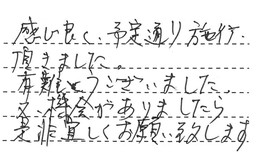 感じ良く、予定通り施行
頂きました。
有難とうございました。
又、機会がありましたら
是非宜しくお願い致します